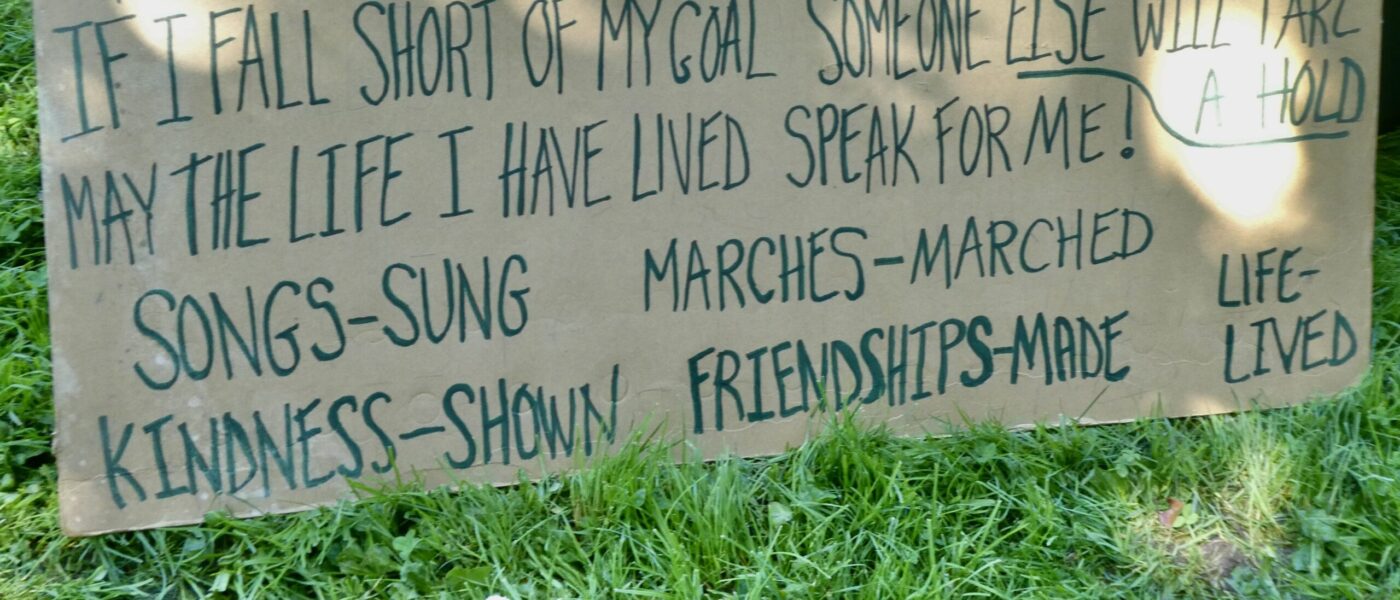 IF I FALL SHORT OF MY GOAL SOMEONE ELSE WILL TAKE
A HOLD
MAY THE LIFE I HAVE LIVED SPEAK FOR ME!
SONGS-SUNG MARCHES-MARCHED LIFE-
KINDNESS-SHOWN FRIENDSHIPS-MADE LIVED